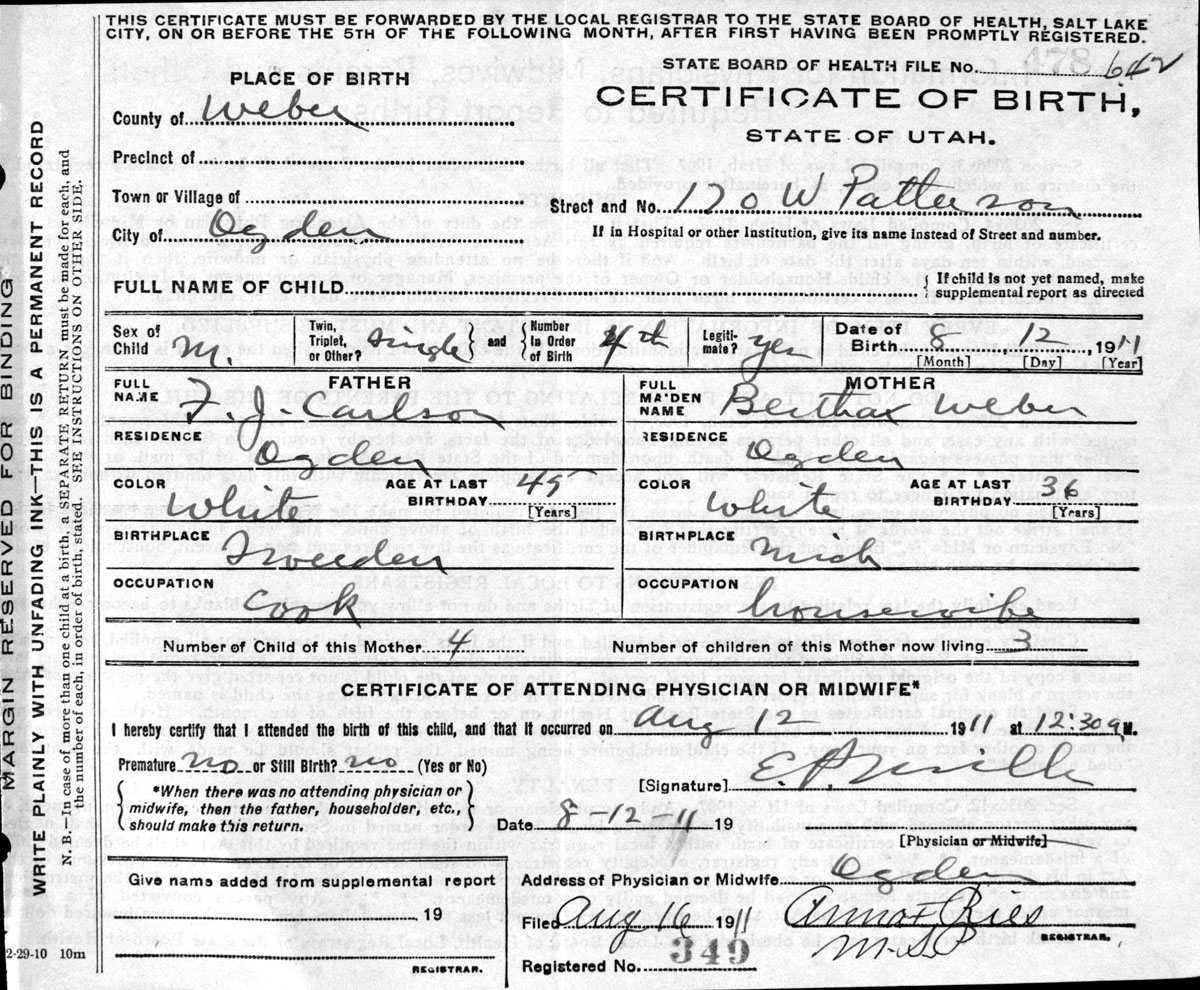 THIS CERTIFICATE MUST BE FORWARDED BY THE LOCAL REGISTRAR TO THE STATE BOARD OF HEALTH, SALT LAKE
CITY, ON OR BEFORE THE 5TH OF THE FOLLOWING MONTH, AFTER FIRST HAVING BEEN PROMPTLY REGISTERED.
STATE BOARD OF HEALTH FILE No. 478 642
CERTIFICATE OF BIRTH,
STATE OF UTAH.
PLACE OF BIRTH
County of Weber
Precinct of
Town or Village of
City of Ogden
Street and No. 170 W Patterson
If in Hospital or other Institution give its name instead of Street and number.
FULL NAME OF CHILD
If child is not yet named, make
supplemental report as directed
Sex of Child M.
Twin, Triplet, or Other? Single
and
Number In Order of Birth 4th
Legiti-mate? yes
Date of Birth 8, 12, 1911
[Month] [Day] [Year]
FATHER
FULL NAME J. Carlson
RESIDENCE Ogden
COLOR White
AGE AT LAST BIRTHDAY 45 [Years]
BIRTHPLACE Sweeden
OCCUPATION Cook
MOTHER
FULL MAIDEN NAME Bertha Weber
RESIDENCE Ogden
COLOR White
AGE AT LAST BIRTHDAY 36 [Years]
BIRTHPLACE Mich
OCCUPATION housewife
Number of Child of this Mother 4
Number of children of this Mother now living 3
CERTIFICATE OF ATTENDING PHYSICIAN OR MIDWIFE*
I hereby certify that I attended the birth of this child, and that it occurred on Aug 12 1911 at 12:30 a M.
Premature no or Still Birth? no (Yes or No)
*When there was no attending physician or
midwife, then the father, householder, etc.,
should make this return.
[Signature]
Date 8-12-11 19
[Physician or Midwife]
Give name added from supplemental report
19
REGISTRAR.
Address of Physician or Midwife Ogden
Filed Aug 16 1911
Ries
M.D.
REGISTRAR.
Registered No. 349
MARGIN RESERVED FOR BINDING
WRITE PLAINLY WITH UNFADING INK—THIS IS A PERMANENT RECORD
N. B.—In case of more than one child at a birth, a SEPARATE RETURN must be made for each, and
the number of each, in order of birth, stated. SEE INSTRUCTIONS ON OTHER SIDE.
2-29-10 10m